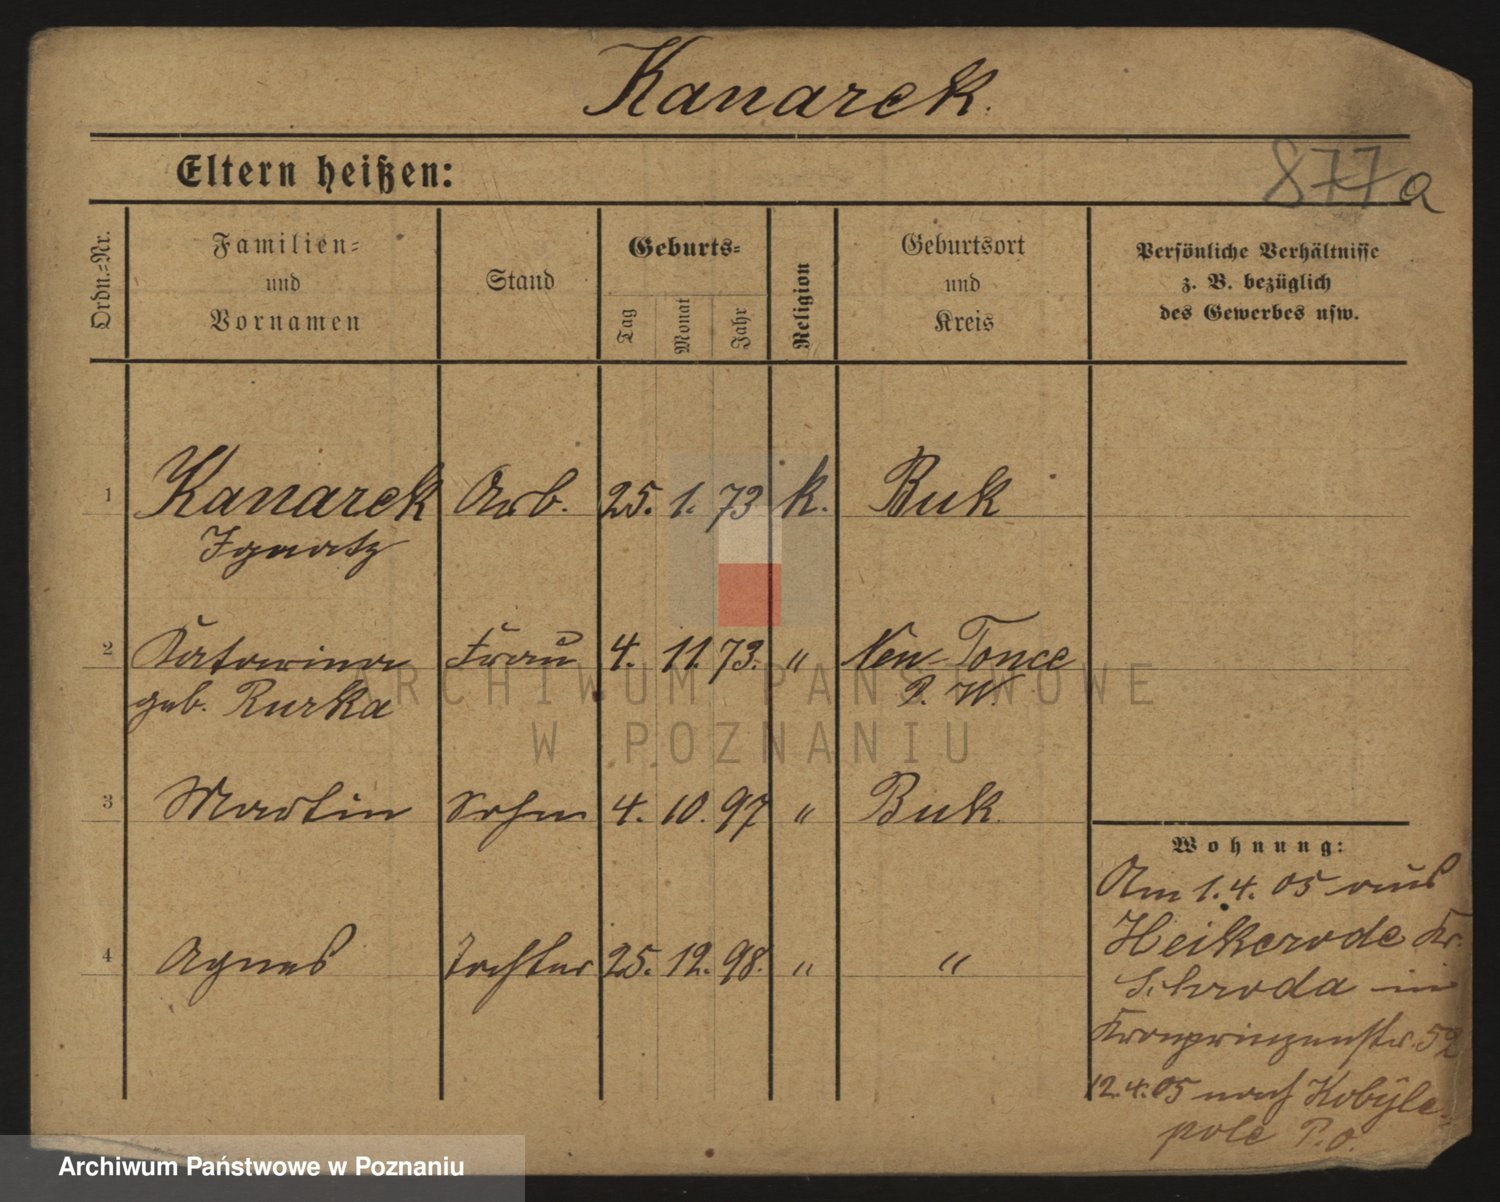 Kanarek.
Eltern heißen:
877a
Ordn.-Nr.
Familien-
und
Vornamen
Stand
Geburts-
Tag
Monat
Jahr
Religion
Geburtsort
und
Kreis
Persönliche Verhältnisse
z. B. bezüglich
des Gewerbes usw.
1 Kanarek Arb. 25. 1. 73 k. Buk
Ignatz
2 Katarina Frau 4. 11. 73. " Neu-Tonce
geb. Rurka P. W.
3 Martin Sohn 4. 10. 97 " Buk.
4 Agnes Tochter 25. 12. 98. " "
Wohnung:
Am 1. 4. 05 aus
Heikerode Kr.
Schroda in
Kronprinzenstr. 52
12. 4. 05 nach Kobyle-
pole P. O.
ARCHIWUM PAŃSTWOWE
W POZNANIU
Archiwum Państwowe w Poznaniu